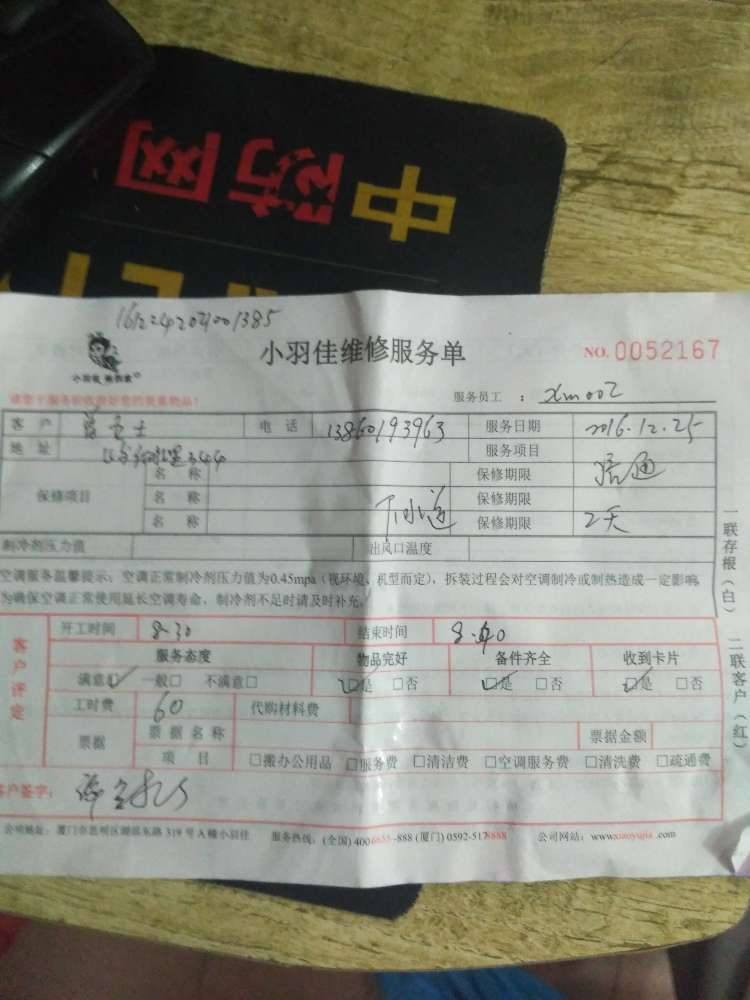 中防网
小羽佳维修服务单
NO. 0052167
服务员工：xm002
客户 女士 电话 13860193963 服务日期 2016.12.25
地址 服务项目 疏通
保修项目 名称 保修期限
名称 下水道 保修期限
名称 保修期限 2天
制冷剂压力值 出风口温度
空调服务温馨提示：空调正常制冷剂压力值为0.45mpa（视环境、机型而定），拆装过程会对空调制冷或制热造成一定影响
为确保空调正常使用延长空调寿命，制冷剂不足时请及时补充。
一联存根（白） 二联客户（红）
客户评定
开工时间 8-30 结束时间 8-40
服务态度 物品完好 备件齐全 收到卡片
满意☑ 一般□ 不满意□ ☑是 □否 ☑是 □否 ☑是 □否
工时费 60 代购材料费
票据 票据名称 票据金额
项目 □搬办公用品 □服务费 □清洁费 □空调服务费 □清洗费 □疏通费
客户签字：
公司地址：厦门市思明区 东路319号A幢小羽佳 服务热线：(全国) 4006655-888 (厦门) 0592-5178888 公司网站：www.xiaoyujia.com